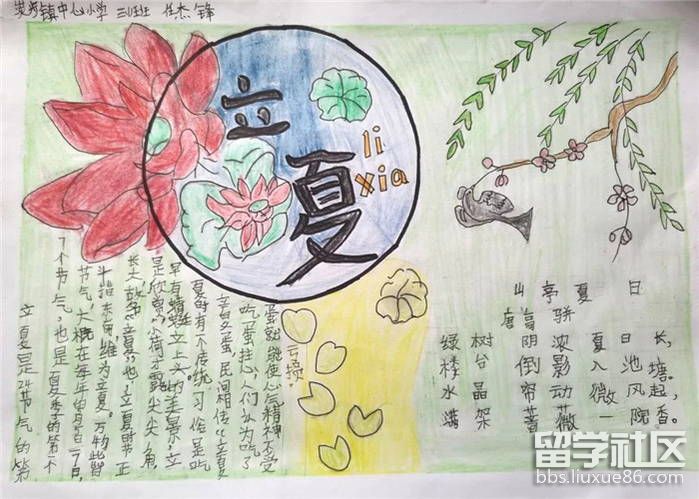 镇中心小学 三(1)班 任杰锋
立
夏
li
xia
山亭夏日
唐 高骈
绿树阴浓夏日长,
楼台倒影
池塘。
水晶帘动微风起,
满架蔷薇一院香。
立夏是24节气的第
7个节气,也是夏季的第一个
节气,大概在每年
斗指东南,维为立夏,万物皆
长大,故名立夏
早有蜻蜓立上头的美景,立
夏时有个传统习俗是吃
立夏蛋,民间相传“立夏
吃蛋拄心”人们认为吃了
蛋就能使心气精神不受
亏损。
留学社区
bbs.liuxue86.com